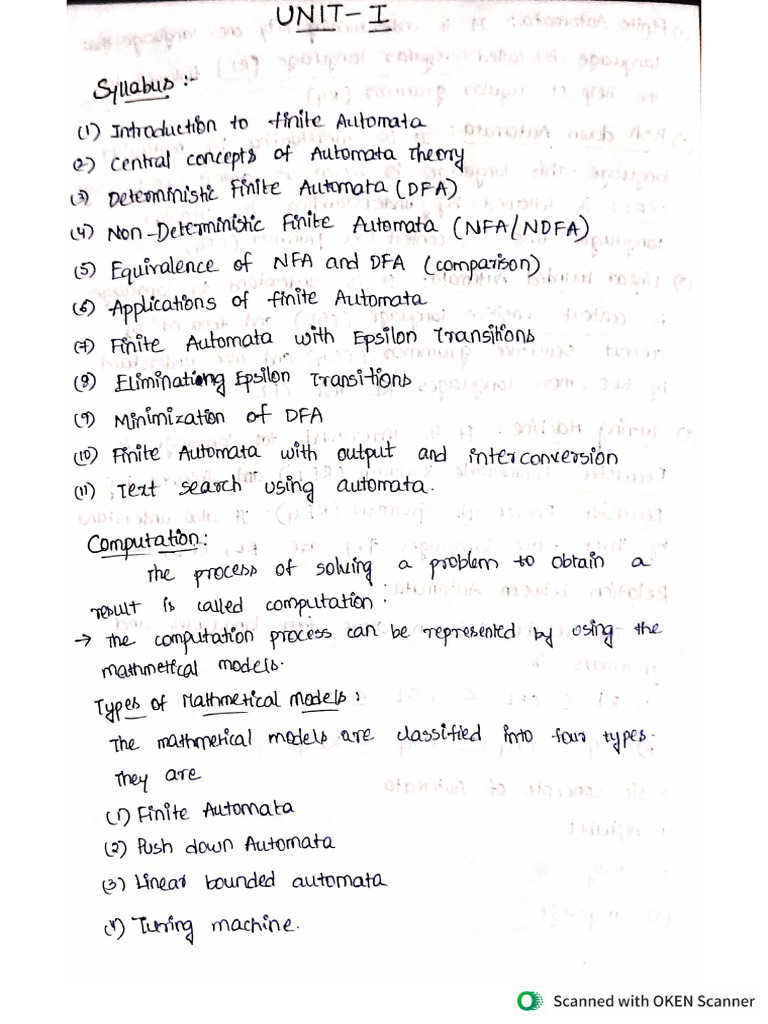 UNIT-I
Syllabus :-
(1) Introduction to finite Automata
2) Central concepts of Automata Theory
(3) Deterministic Finite Automata (DFA)
(4) Non-Deterministic Finite Automata (NFA/NDFA)
(5) Equivalence of NFA and DFA (comparison)
(6) Applications of finite Automata
(7) Finite Automata with Epsilon Transitions
(8) Eliminationg Epsilon Transitions
(9) Minimization of DFA
(10) Finite Automata with output and interconversion
(11) Text search using automata.
Computation:
The process of solving a problem to obtain a
result is called computation.
→ The computation process can be represented by using the
mathmetical models.
Types of Mathmetical Models:
The mathmetical models are classified into four types.
They are
(1) Finite Automata
(2) Push down Automata
(3) Linear bounded automata
(4) Turing machine.
Scanned with OKEN Scanner